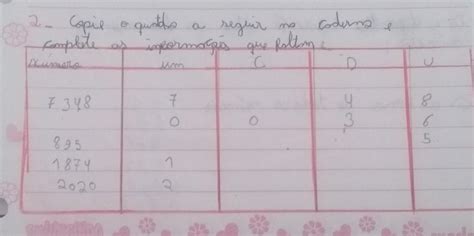 2- Copie o quadro a seguir no caderno e
complete as informações que faltam:
Número um C D U
7348 7 4 8
0 0 3 6
895 5
1874 1
2020 2